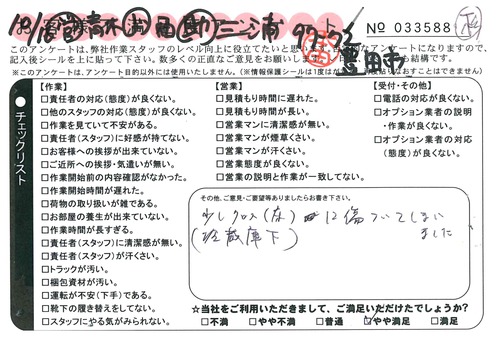 № 033588
このアンケートは、弊社作業スタッフのレベル向上に役立てたいと思い
記入後シールを上に貼って下さい。数多くの正直なご意見をお願いします。
※このアンケートは、アンケート目的以外には使用いたしません。(※情報保護シールは1度は
豊田市
チェックリスト
【作業】
□責任者の対応(態度)が良くない。
□他のスタッフの対応(態度)が良くない。
□作業を見ていて不安がある。
□責任者(スタッフ)に好感が持てない。
□お客様への挨拶が出来ていない。
□ご近所への挨拶・気遣いが無い。
□作業開始前の内容確認がなかった。
□作業開始時間が遅れた。
□荷物の取り扱いが雑である。
□お部屋の養生が出来ていない。
□作業時間が長すぎる。
□責任者(スタッフ)に清潔感が無い。
□責任者(スタッフ)が汗くさい。
□トラックが汚い。
□梱包資材が汚い。
□運転が不安(下手)である。
□靴下の履き替えをしてない。
□スタッフにやる気がみられない。
【営業】
□見積もり時間に遅れた。
□見積もり時間が長い。
□営業マンに清潔感が無い。
□営業マンが煙草くさい。
□営業マンが汗くさい。
□営業態度が良くない。
□営業の説明と作業が一致してない。
【受付・その他】
□電話の対応が良くない。
□オプション業者の説明
・作業が良くない。
□オプション業者の対応
(態度)が良くない。
その他、ご意見・ご要望等ありましたらお書き下さい。
少しクロス(床)に傷ついてしまい
ました
(冷蔵庫下)
☆当社をご利用いただきまして、ご満足いただけたでしょうか?
□不満 □やや不満 □普通 ☑やや満足 □満足